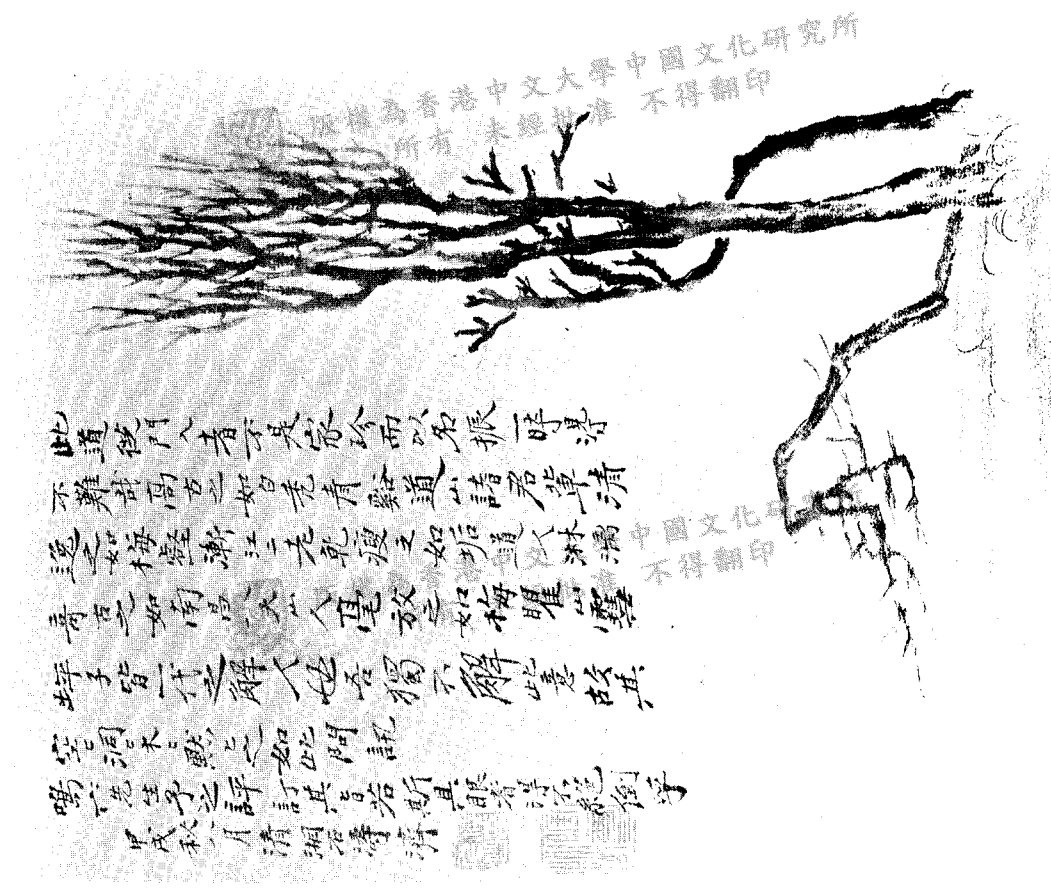 版權為香港中文大學中國文化研究所
所有 未經批准 不得翻印
此道從門入者不是家珍而以名振一時得
不難哉高古之如白禿青谿道山諸君輩清
逸之如梅壑漸江二老乾瘦之如垢道人淋漓
奇古之如南昌八大山人豪放之如梅瞿山雪
坪子皆一代之解人也吾獨不解此意故其
空〻洞〻木〻默〻之如此問訊
鳴六先生予之評訂其旨若斯具眼者得不絕倒乎
甲戌秋八月清湘石濤濟
中國文化研
香港中文 批准 不得翻印